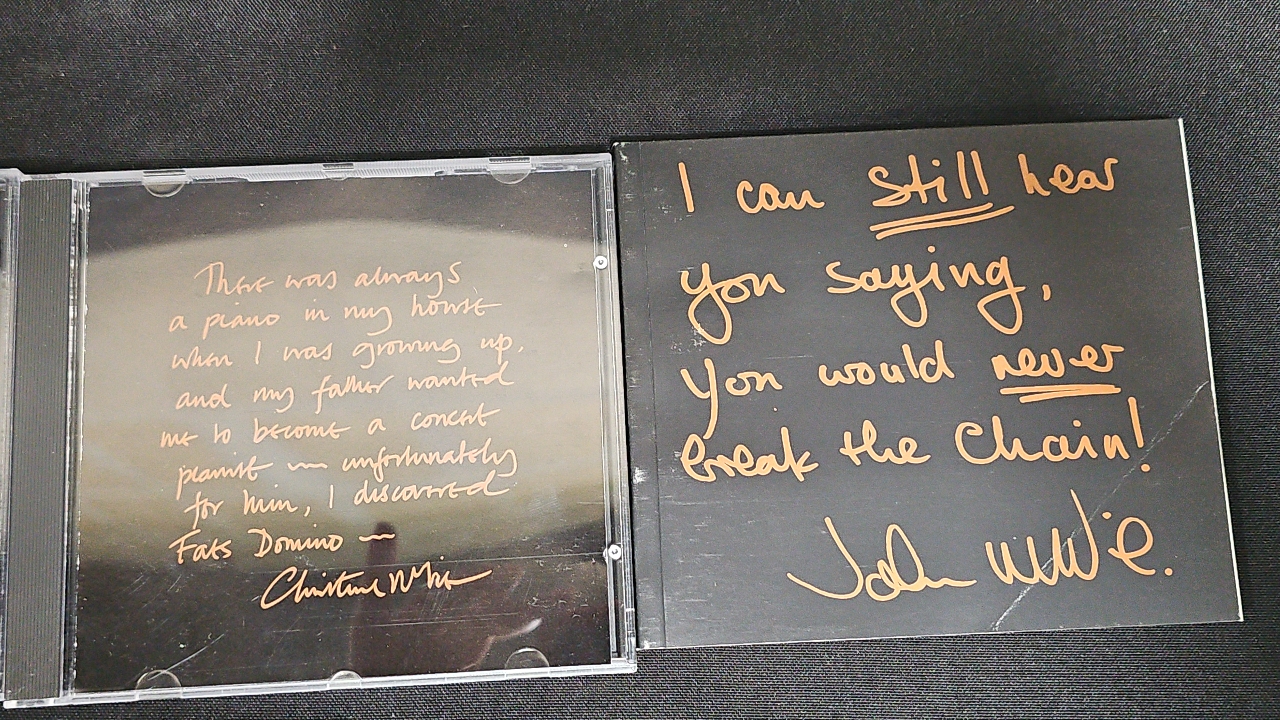 There was always
a piano in my house
when I was growing up,
and my father wanted
me to become a concert
pianist — unfortunately
for him, I discovered
Fats Domino —
Christine McVie
I can still hear
you saying,
you would never
break the Chain!
John McVie.